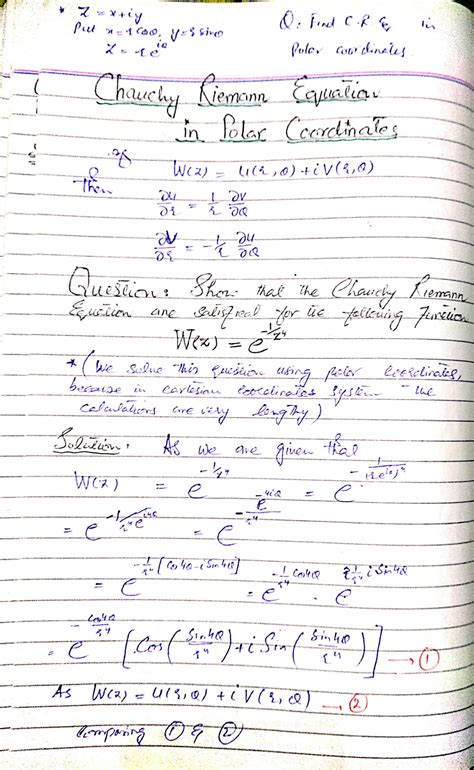 * Z = x+iy
Put x = r cosθ, y = r sinθ
Z = r e^{iθ}
Q: Find C.R Eq in
Polar coordinates.
Chauchy Riemann Equation
in Polar Coordinates
If W(z) = U(r,θ) + iV(r,θ)
Then
∂u/∂r = 1/r ∂V/∂θ
∂V/∂r = -1/r ∂u/∂θ
Question: Show that the Chauchy Riemann
Equation are satisfied for the following function
W(z) = e^{-1/z^4}
* (We solve this question using polar coordinates,
because in cartesian coordinates system the
calculations are very lengthy)
Solution: As we are given that
W(z) = e^{-1/z^4} = e^{-1/(re^{iθ})^4}
= e^{-1/r^4e^{i4θ}} = e^{-e^{-4iθ}/r^4}
= e^{-1/r^4[Cos4θ-iSin4θ]} = e^{-1/r^4 Cos4θ} . e^{1/r^4 iSin4θ}
= e^{-cos4θ/r^4} [Cos(Sin4θ/r^4) + i Sin(Sin4θ/r^4)] → ①
As W(z) = U(r,θ) + iV(r,θ) → ②
Comparing ① & ②